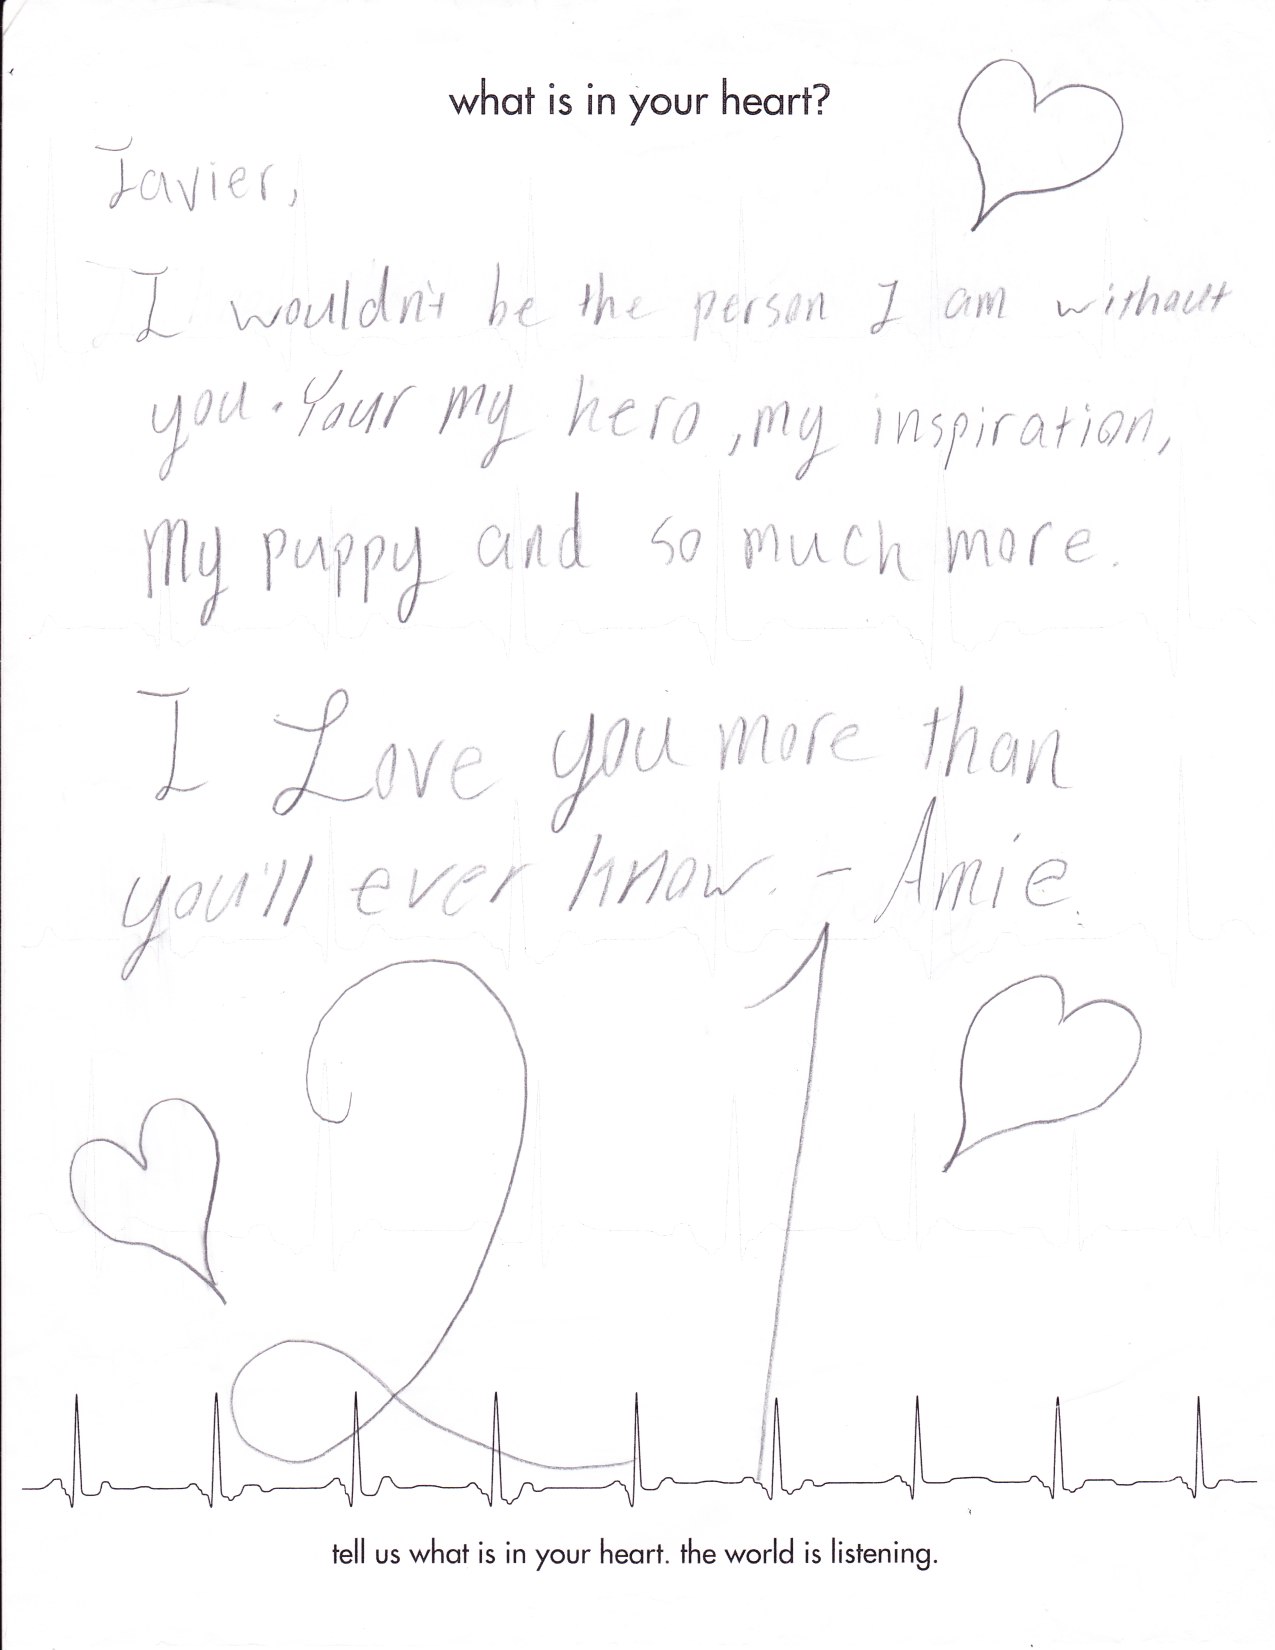 what is in your heart?
Javier,
I wouldn't be the person I am without
you. Your my hero, my inspiration,
My puppy and so much more.
I Love you more than
you'll ever know. - Amie.
21
tell us what is in your heart. the world is listening.